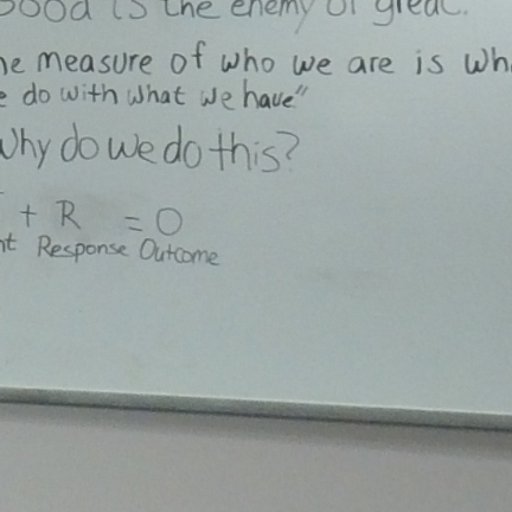 Good is the enemy of great.
he measure of who we are is wh
e do with what we have"
Why do we do this?
+ R = O
nt Response Outcome